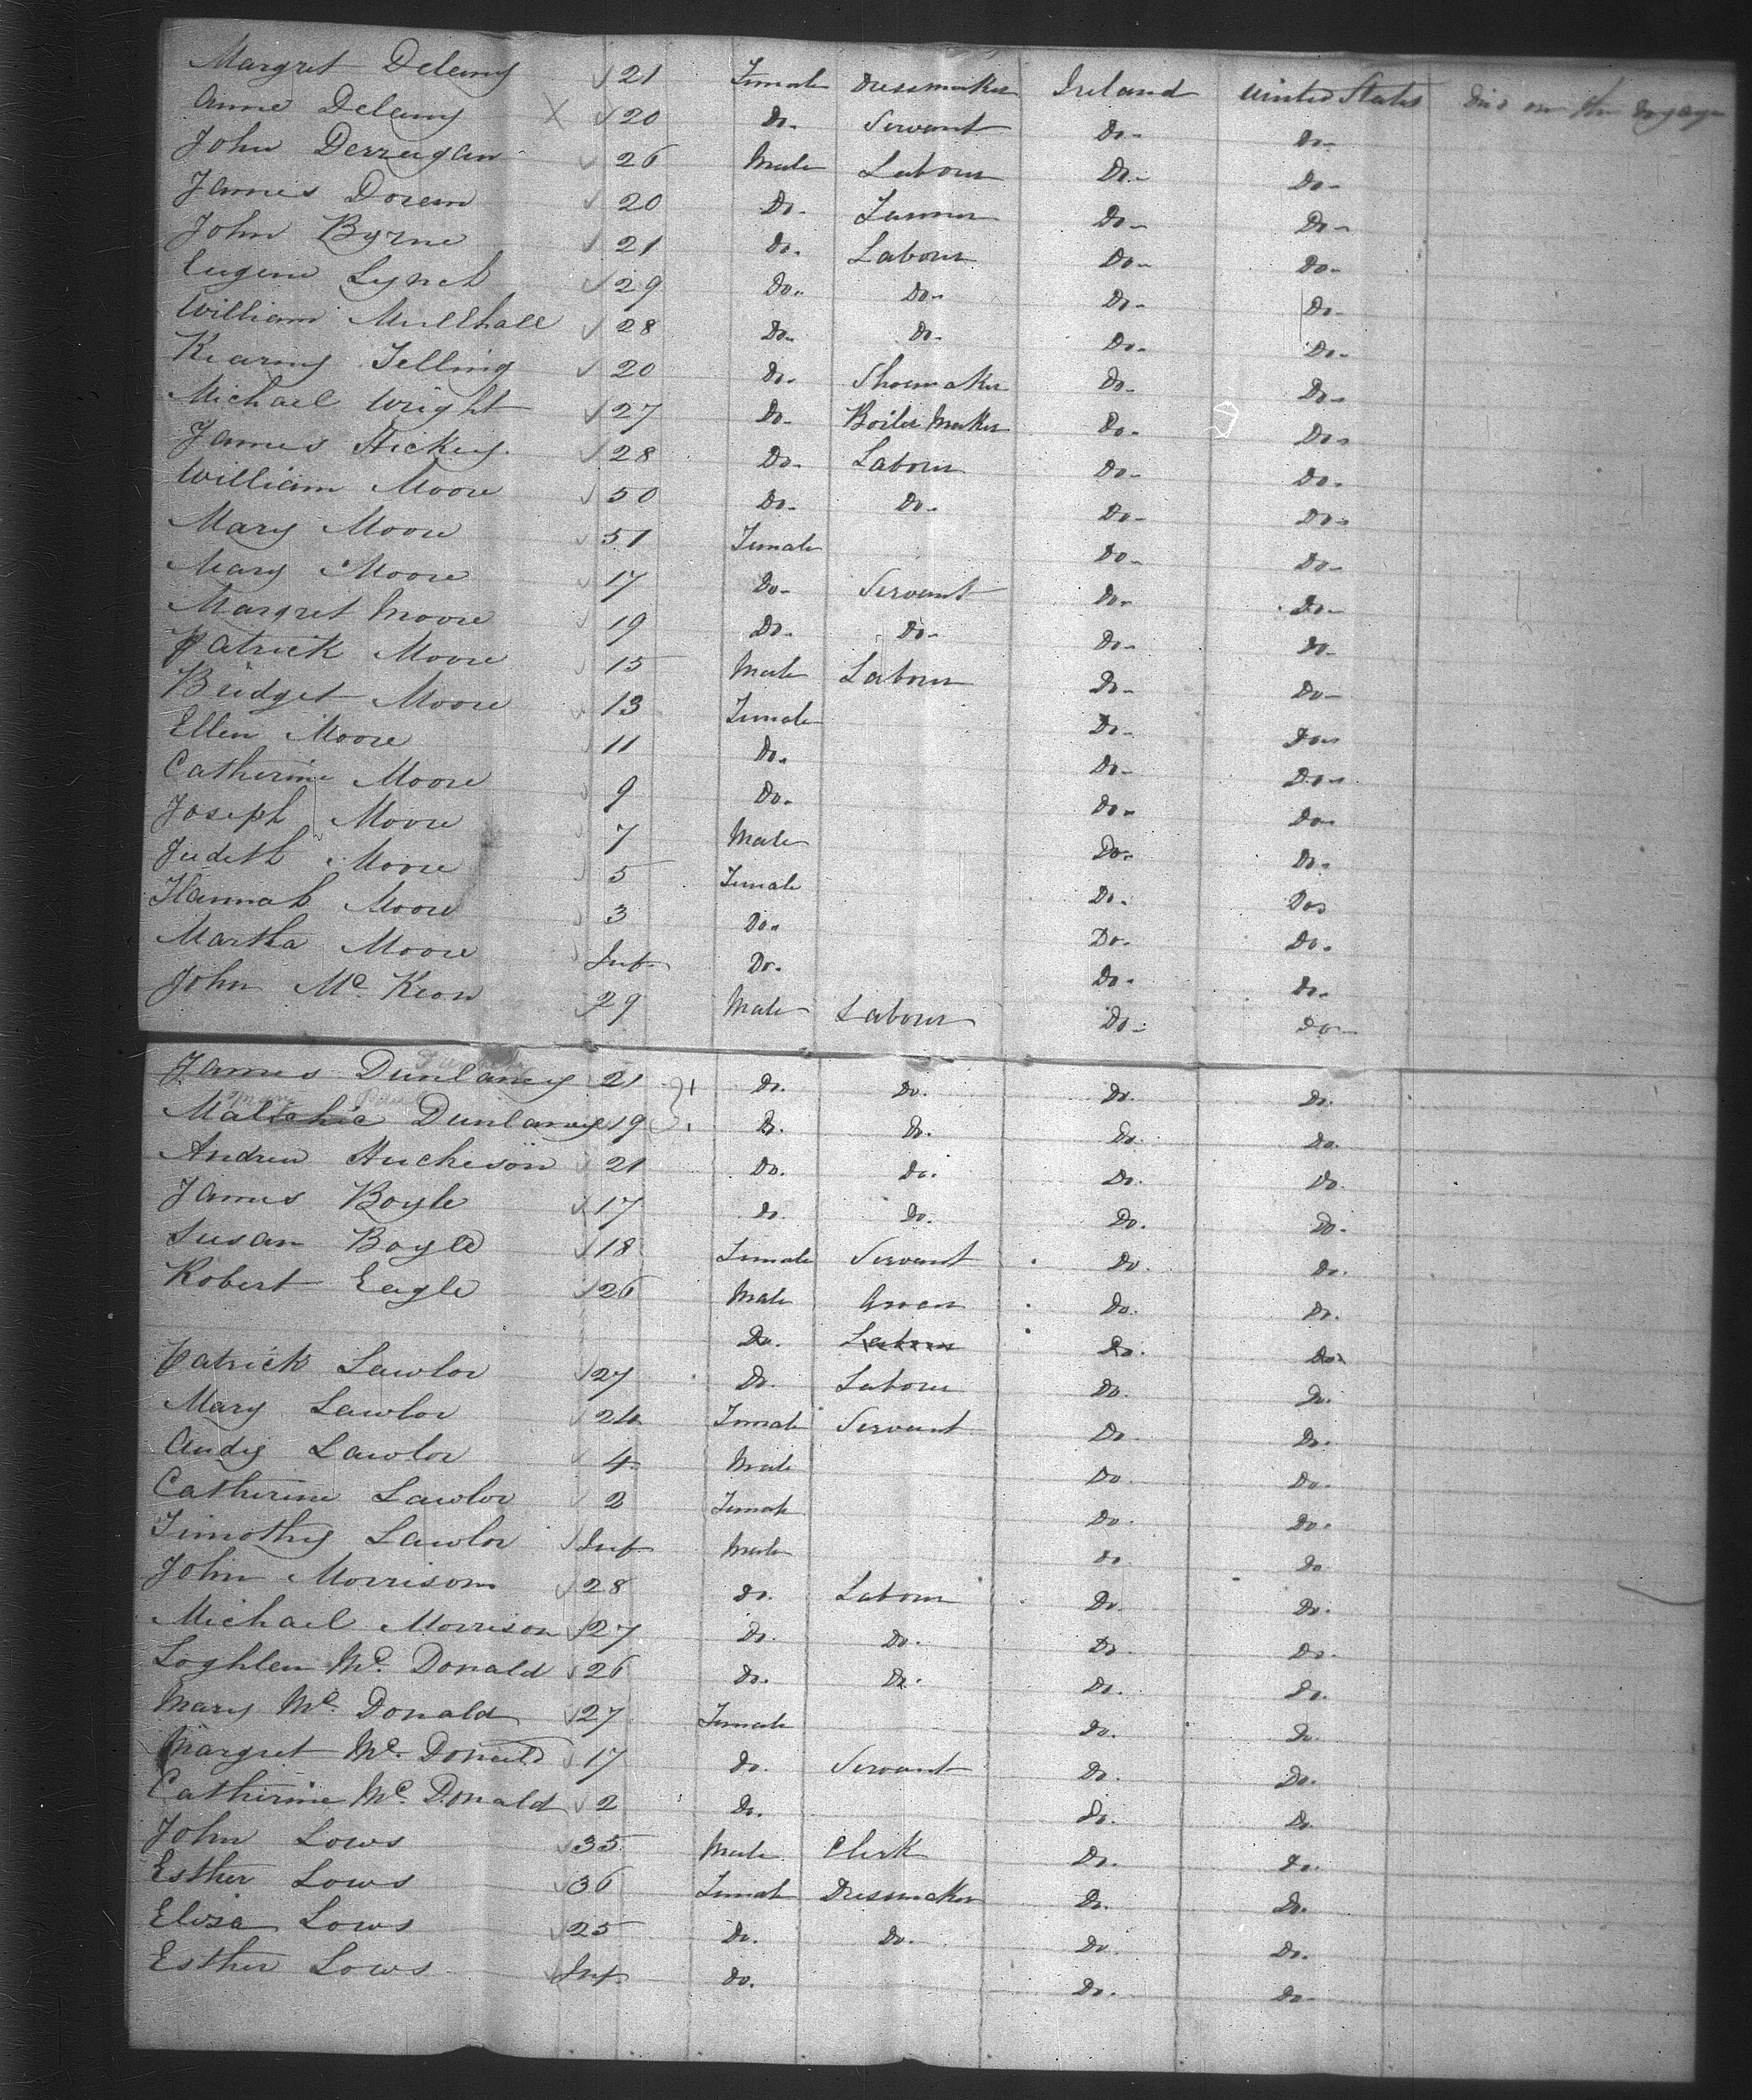 Margret Delany 21 Female Dressmaker Ireland United States Died on the Voyage
Anne Delany X 20 Do- Servant Do- Do-
John Derrugan 26 Male Labour Do- Do-
James Doren 20 Do- Do- Do-
John Byrne 21 Do. Labour Do- Do-
Eugene Lynch 29 Do- Do- Do- Do-
William Mullhall 28 Do- Do- Do- Do-
Kearny Felling 20 Do- Shoemaker Do- Do-
Michael Wright 27 Do- Boiler Maker Do- Do-
James Hickey 28 Do- Labour Do- Do-
William Moore 50 Do- Do- Do- Do-
Mary Moore 51 Female Do- Do-
Mary Moore 17 Do- Servant Do- Do-
Margret Moore 19 Do- Do- Do- Do-
Patrick Moore 15 Male Labour Do- Do-
Bridget Moore 13 Female Do- Do-
Ellen Moore 11 Do. Do- Do-
Catherine Moore 9 Do. Do- Do-
Joseph Moore 7 Male Do- Do-
Judith Moore 5 Female Do- Do-
Hannah Moore 3 Do- Do. Do.
Martha Moore Inf. Do. Do- Do-
John Mc Keon 29 Male Labour Do- Do-
James Dunlaney 21 Do. Do. Do. Do.
Dunlaney 19 Do. Do. Do. Do.
Andrew Hucheson 21 Do. Do. Do. Do.
James Boyle 17 Do. Do. Do. Do.
Susan Boyle 18 Female Servant Do. Do.
Robert Eagle 26 Male Do. Do.
Do. Labour Do. Do.
Patrick Lawlor 27 Do. Labour Do. Do.
Mary Lawlor 24 Female Servant Do. Do.
Andy Lawlor 4 Male Do. Do.
Catherine Lawlor 2 Female Do. Do.
Timothy Lawlor Inf Male Do Do
John Morrison 28 Do. Labour Do. Do.
Michael Morrison 27 Do. Do. Do. Do.
Loghlen Mc. Donald 26 Do. Do. Do. Do.
Mary Mc. Donald 27 Female Do. Do.
Margret Mc. Donald 17 Do. Servant Do. Do.
Catherine Mc. Donald 2 Do. Do. Do
John Lows 35 Male Clerk Do. Do.
Esther Lows 36 Female Dressmaker Do. Do.
Eliza Lows 25 Do. Do. Do. Do.
Esther Lows Inf. Do. Do. Do-